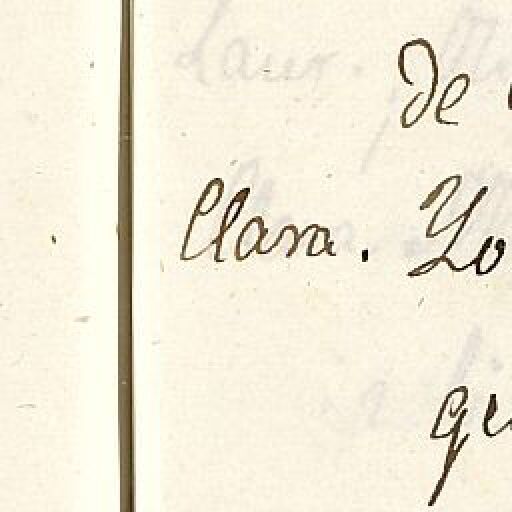 De
Clara. Yo